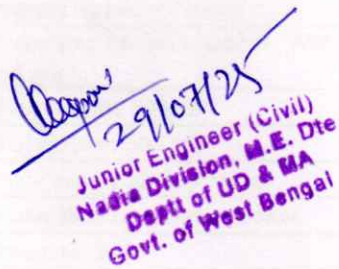 29/07/25
Junior Engineer (Civil)
Nadia Division, M.E. Dte
Deptt of UD & MA
Govt. of West Bengal